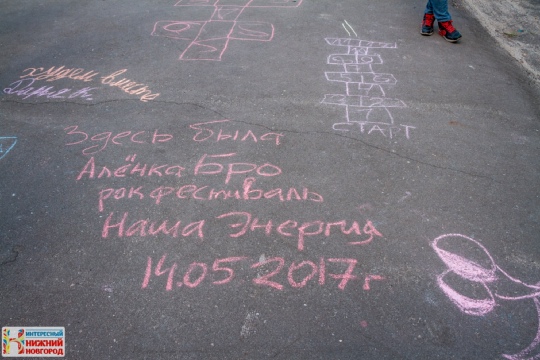 худеем вместе
Здесь была
Алёнка Бро
рок фестиваль
Наша Энергия
14.05 2017 г
СТАРТ
ИНТЕРЕСНЫЙ
НИЖНИЙ
НОВГОРОД